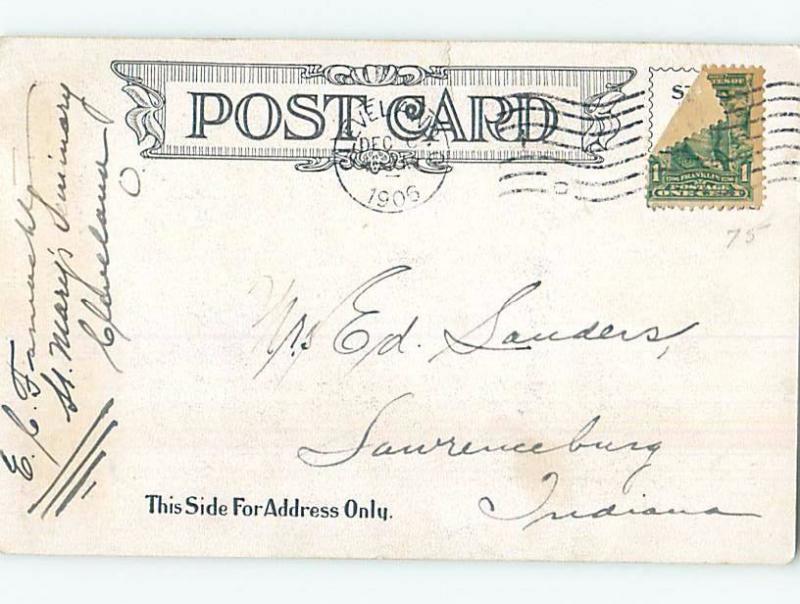 POST CARD
CLEVELAND
DEC
1906
1 FRANKLIN 1
POSTAGE
ONE CENT
75
Mrs Ed. Sanders,
Lawrenceburg
Indiana
This Side For Address Only.
E. C.
St. Mary's Siminary
Cleveland
O.